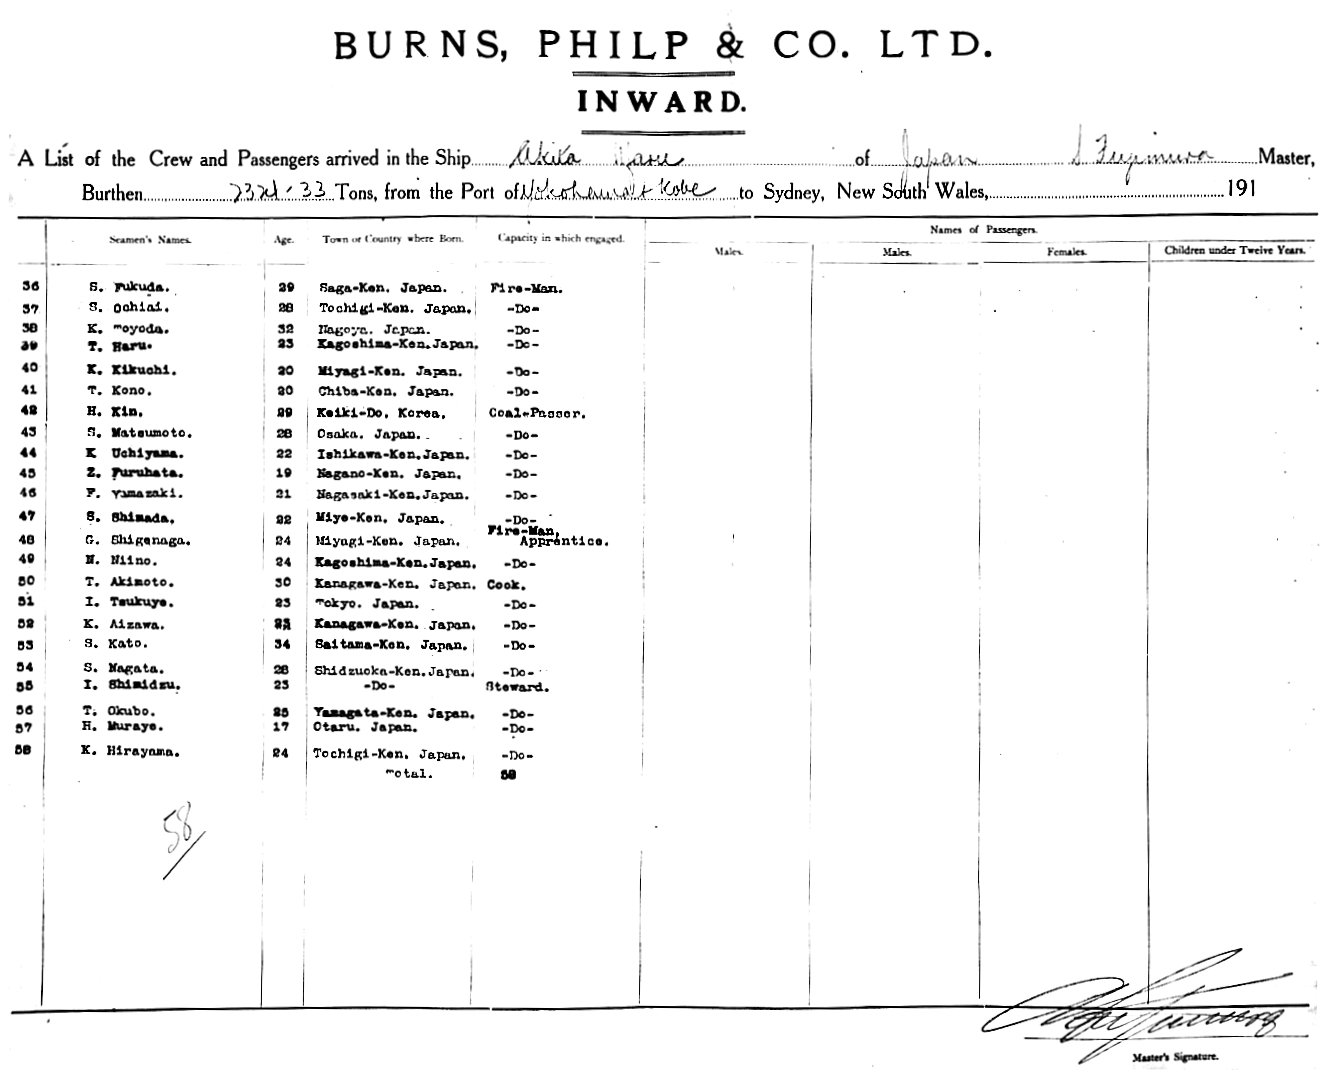 BURNS, PHILP & CO. LTD.
INWARD.
A List of the Crew and Passengers arrived in the Ship Akita Maru of Japan S Fugimura Master,
Burthen Tons, from the Port of Yokohama & Kobe to Sydney, New South Wales, 191
Seamen's Names. Age. Town or Country where Born. Capacity in which engaged. Names of Passengers.
Males. Males. Females. Children under Twelve Years.
36 S. Fukuda. 29 Saga-Ken. Japan. Fire-Man.
37 S. Ochiai. 28 Tochigi-Ken. Japan. -Do-
38 K. Toyoda. 32 Nagoya. Japan. -Do-
39 T. Haru. 23 Kagoshima-Ken.Japan. -Do-
40 K. Kikuchi. 20 Miyagi-Ken. Japan. -Do-
41 T. Kono. 20 Chiba-Ken. Japan. -Do-
42 H. Kin. 29 Keiki-Do. Korea. Coal-Passer.
43 S. Matsumoto. 28 Osaka. Japan. -Do-
44 K Uchiyama. 22 Ishikawa-Ken.Japan. -Do-
45 Z. Furuhata. 19 Nagano-Ken. Japan. -Do-
46 F. Yamazaki. 21 Nagasaki-Ken.Japan. -Do-
47 S. Shimada. 22 Miye-Ken. Japan. -Do-
48 G. Shigenaga. 24 Miyagi-Ken. Japan. Fire-Man, Apprentice.
49 N. Niino. 24 Kagoshima-Ken.Japan. -Do-
50 T. Akimoto. 30 Kanagawa-Ken. Japan. Cook.
51 I. Tsukuye. 23 Tokyo. Japan. -Do-
52 K. Aizawa. 23 Kanagawa-Ken. Japan. -Do-
53 S. Kato. 34 Saitama-Ken. Japan. -Do-
54 S. Nagata. 28 Shidzuoka-Ken.Japan. -Do-
55 I. Shimidzu. 23 -Do- Steward.
56 T. Okubo. 25 Yamagata-Ken. Japan. -Do-
57 H. Muraye. 17 Otaru. Japan. -Do-
58 K. Hirayama. 24 Tochigi-Ken. Japan. -Do-
Total. 58
58/
Master's Signature.